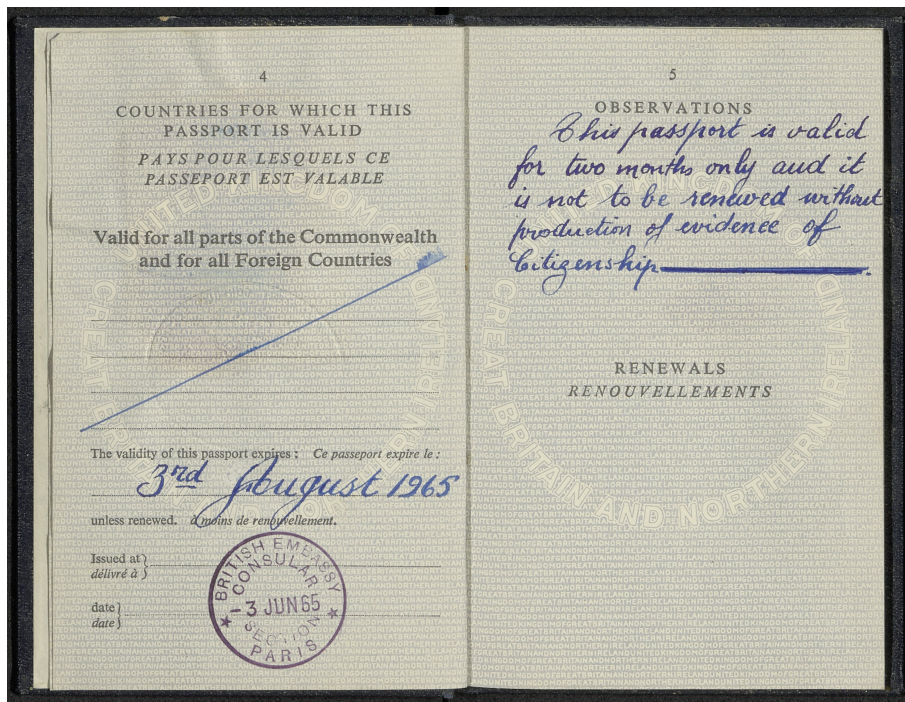 4
COUNTRIES FOR WHICH THIS
PASSPORT IS VALID
PAYS POUR LESQUELS CE
PASSEPORT EST VALABLE
Valid for all parts of the Commonwealth
and for all Foreign Countries
The validity of this passport expires: Ce passeport expire le:
3rd August 1965
unless renewed. à moins de renouvellement.
Issued at
délivré à
date
date
BRITISH EMBASSY
CONSULAR
- 3 JUN 65
SECTION
PARIS
5
OBSERVATIONS
This passport is valid
for two months only and it
is not to be renewed without
production of evidence of
Citizenship
RENEWALS
RENOUVELLEMENTS
UNITED KINGDOM OF
GREAT BRITAIN AND NORTHERN IRELAND